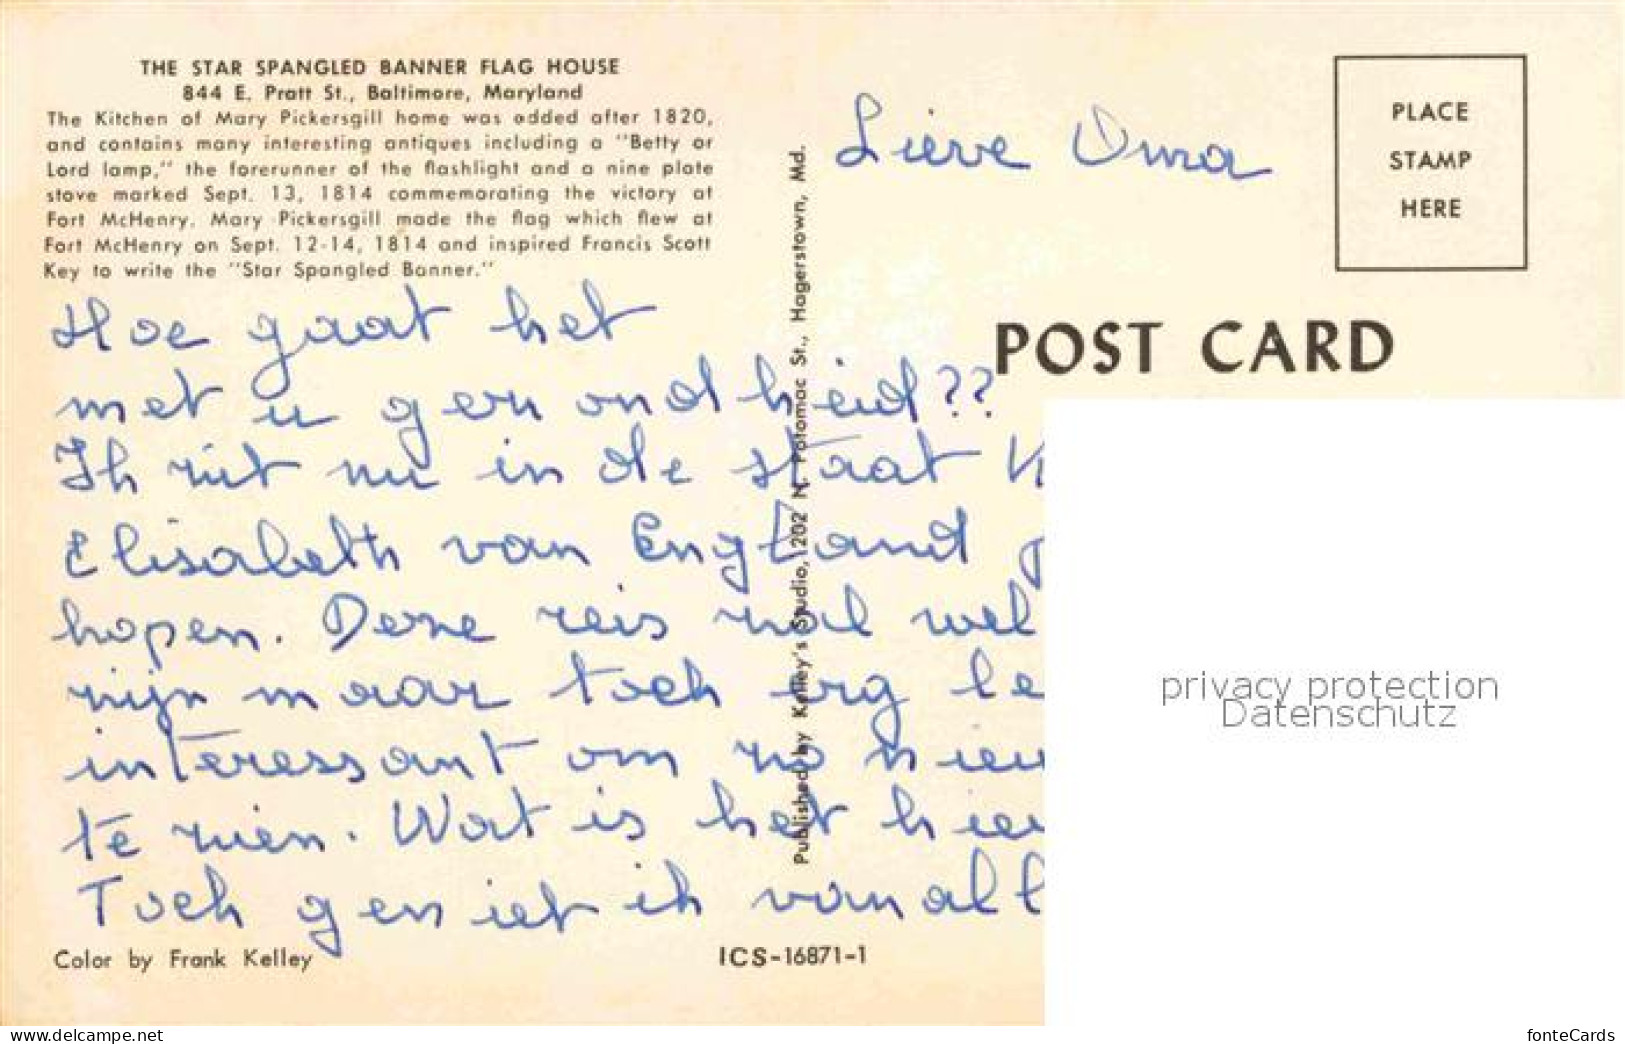 THE STAR SPANGLED BANNER FLAG HOUSE
844 E. Pratt St., Baltimore, Maryland
The Kitchen of Mary Pickersgill home was added after 1820,
and contains many interesting antiques including a "Betty or
Lord lamp," the forerunner of the flashlight and a nine plate
stove marked Sept. 13, 1814 commemorating the victory at
Fort McHenry. Mary Pickersgill made the flag which flew at
Fort McHenry on Sept. 12-14, 1814 and inspired Francis Scott
Key to write the "Star Spangled Banner."
Lieve Oma
PLACE
STAMP
HERE
POST CARD
Hoe gaat het
met u gezondheid??
Ik zit nu in de staat
Elisabeth van England
hopen. Deze reis zal wel
zijn maar toch erg le
interessant om zo
te zien. Wat is het
Toch geniet ik van al
Published by Kelley's Studio, 1202 N. Potomac St., Hagerstown, Md.
privacy protection
Datenschutz
Color by Frank Kelley
ICS-16871-1
www.delcampe.net
fonteCards